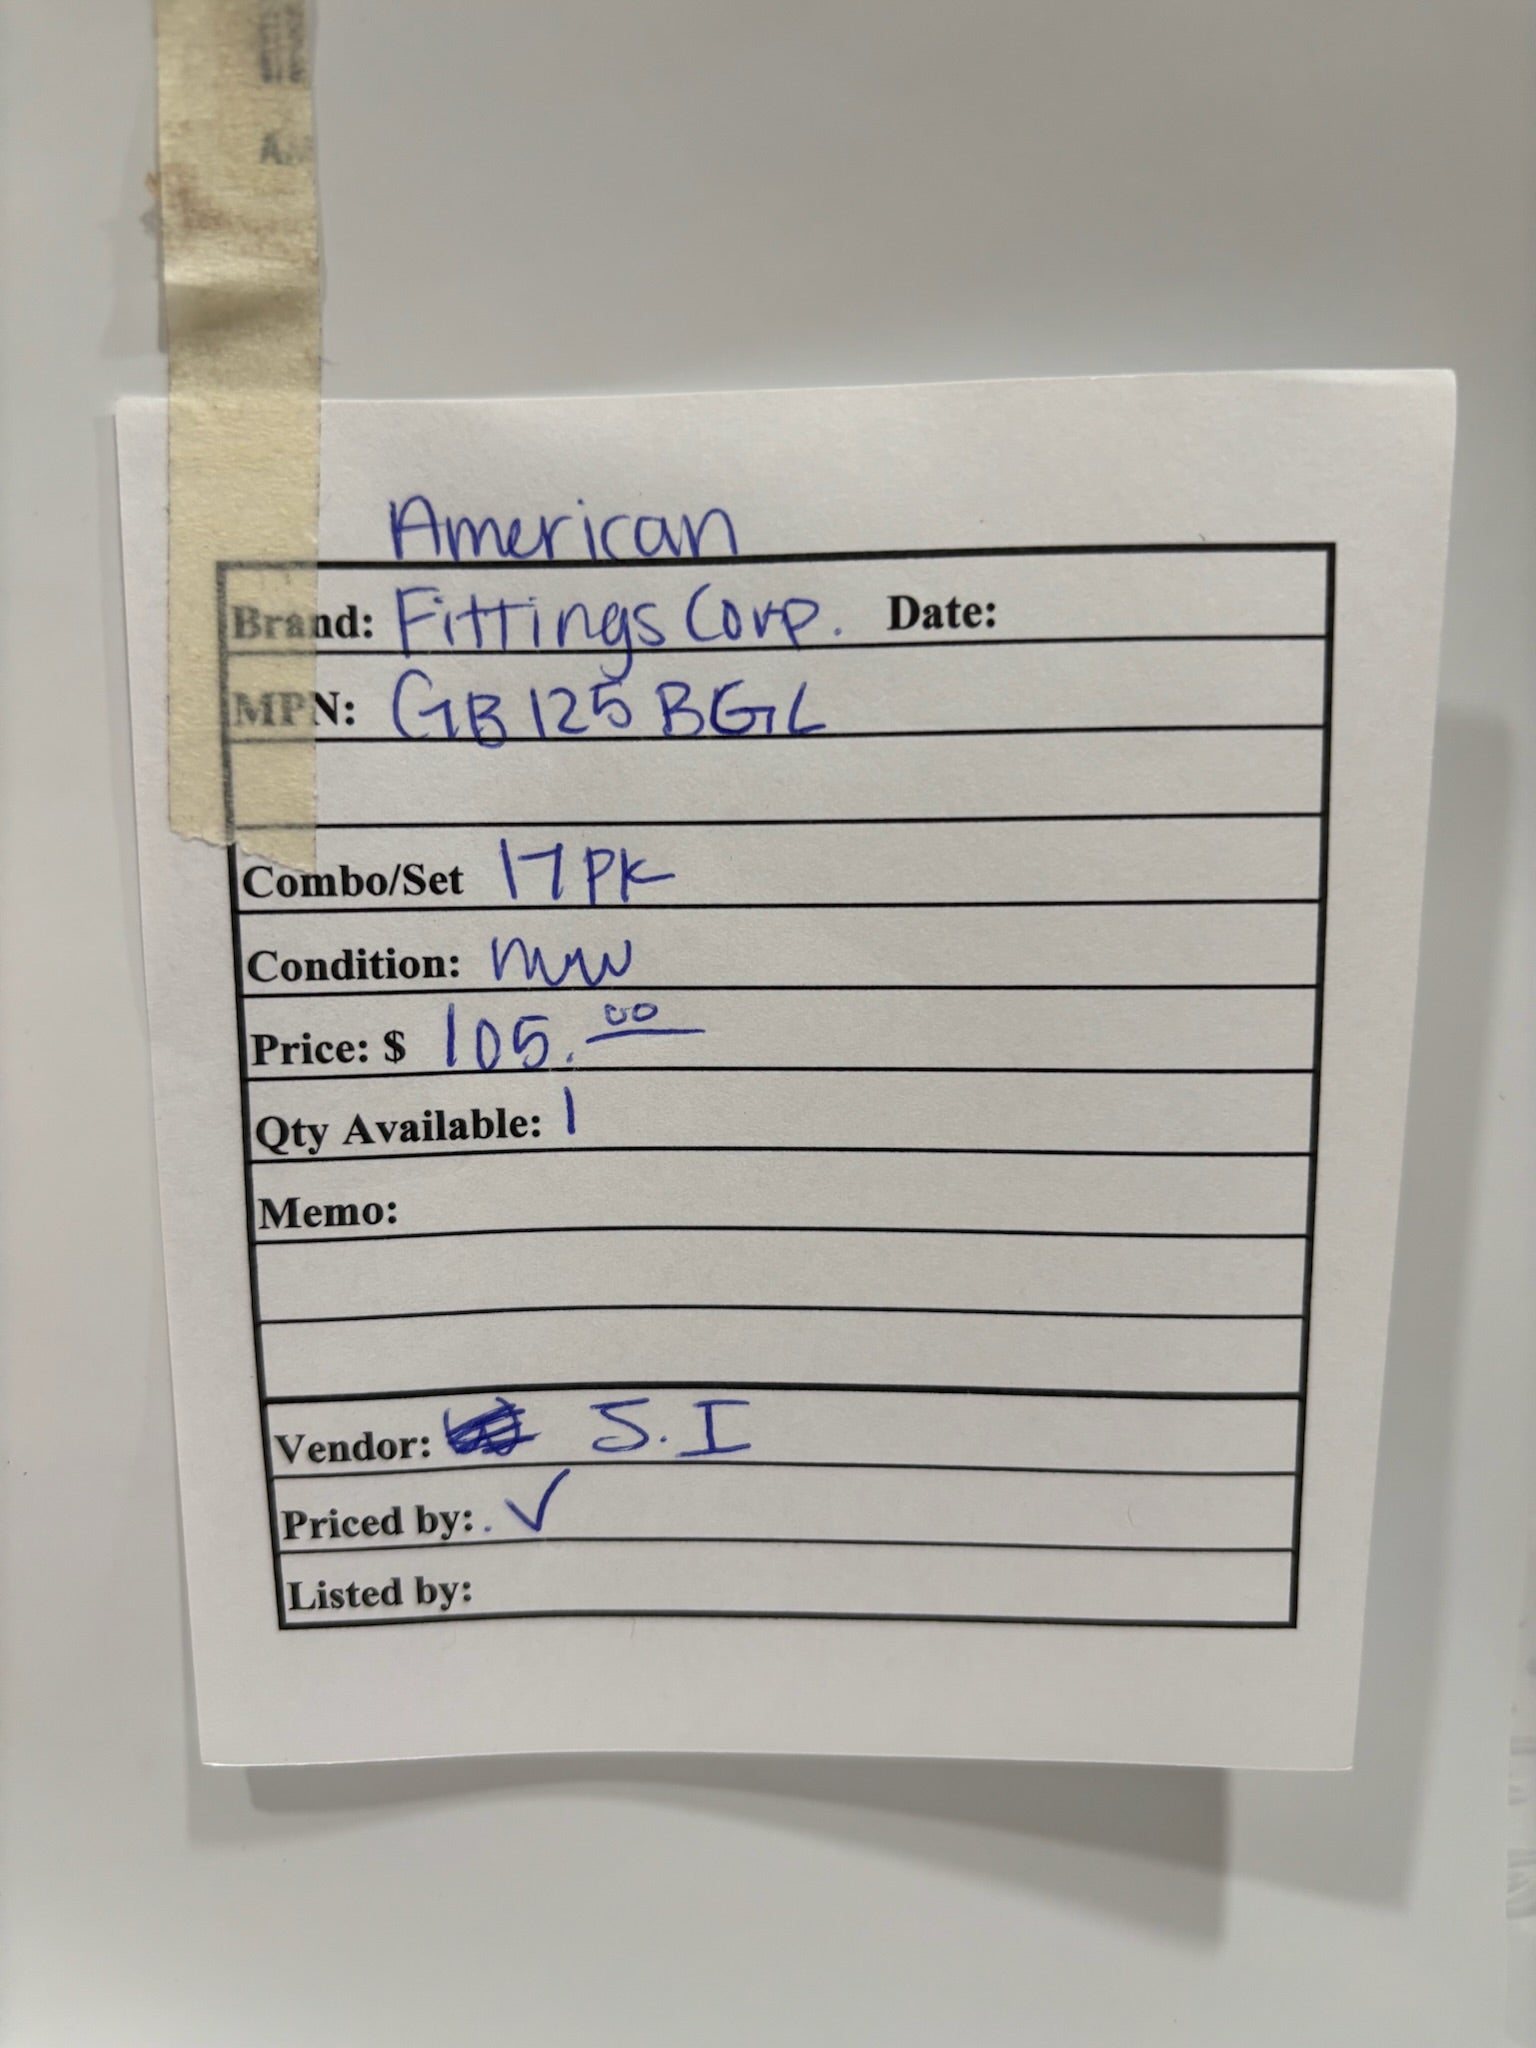 American
Brand: Fittings Corp. Date:
MPN: GB125BGL
Combo/Set 17PK
Condition: new
Price: $ 105.00
Qty Available: 1
Memo:
Vendor: S.I
Priced by: . ✓
Listed by: